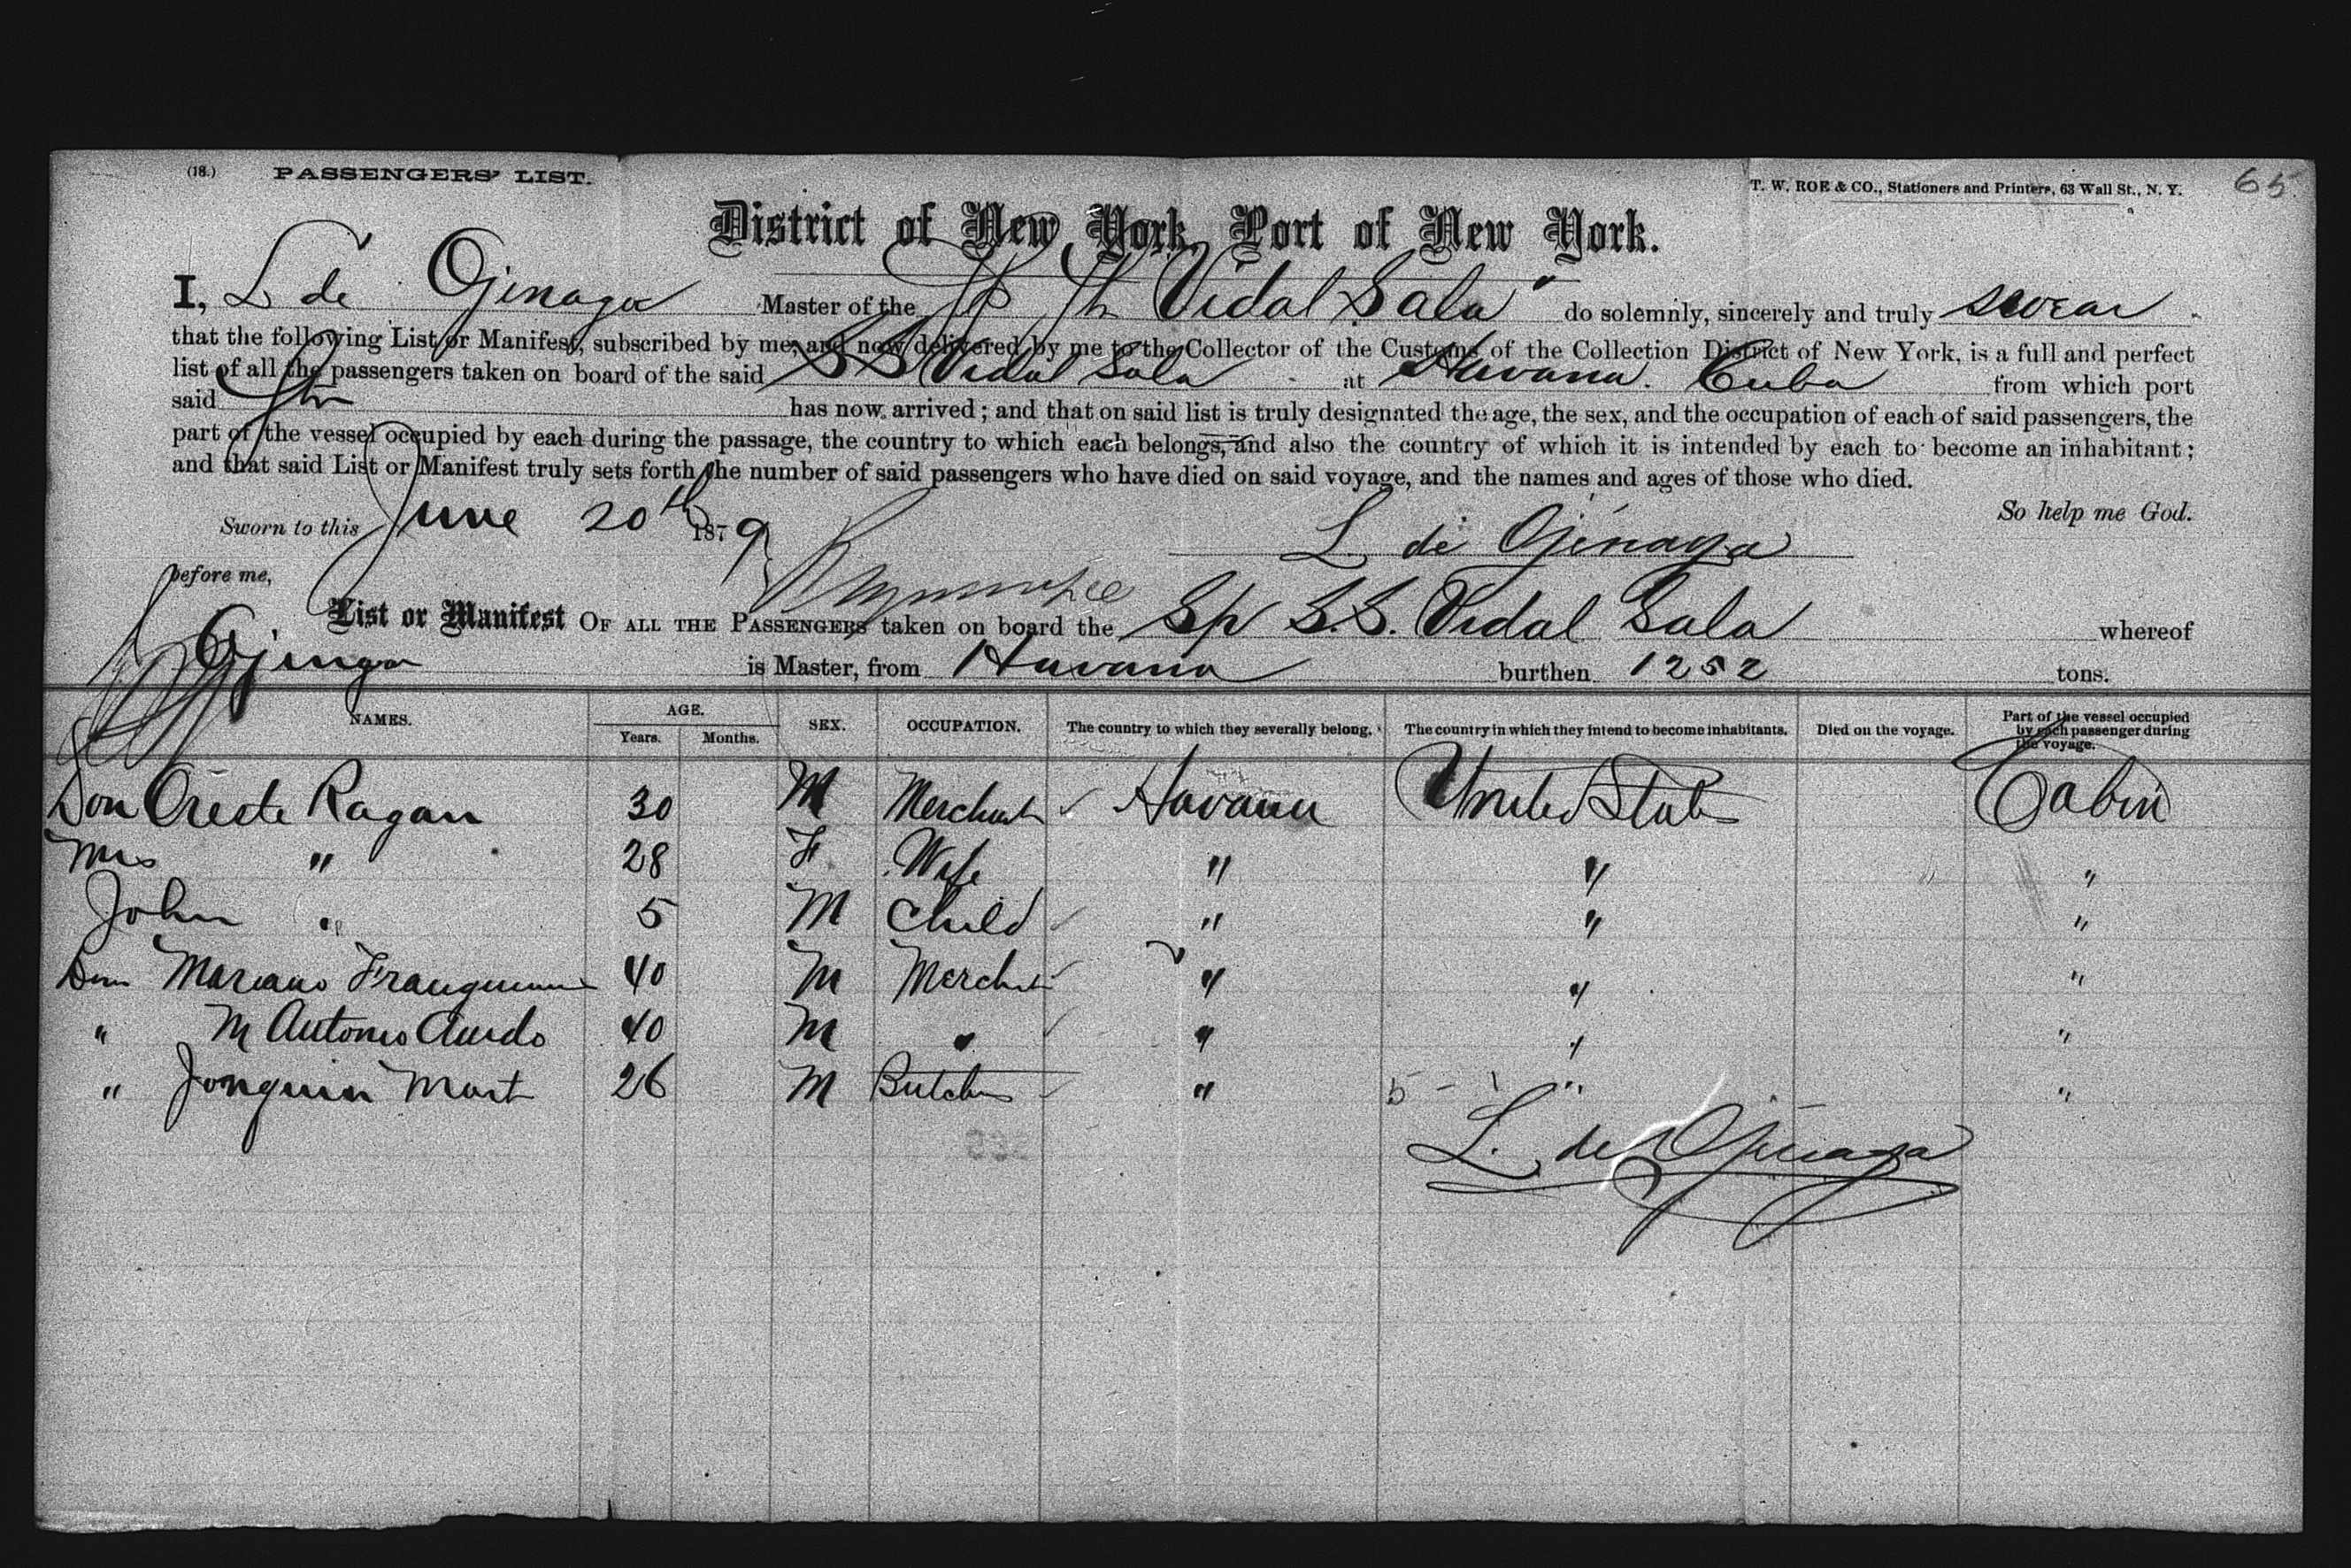 (18.) PASSENGERS' LIST.
T. W. ROE & CO., Stationers and Printers, 63 Wall St., N. Y.
65
District of New York, Port of New York.
I, L de Ojinaga Master of the Sp Str Vidal Sala" do solemnly, sincerely and truly swear
that the following List or Manifest, subscribed by me, and now delivered by me to the Collector of the Customs of the Collection District of New York, is a full and perfect
list of all the passengers taken on board of the said SS Vidal Sala at Havana. Cuba from which port
said Str has now arrived; and that on said list is truly designated the age, the sex, and the occupation of each of said passengers, the
part of the vessel occupied by each during the passage, the country to which each belongs, and also the country of which it is intended by each to become an inhabitant;
and that said List or Manifest truly sets forth the number of said passengers who have died on said voyage, and the names and ages of those who died.
So help me God.
Sworn to this June 20th 1879
L de Ojinaga
before me,
List or Manifest OF ALL THE PASSENGERS taken on board the Sp S.S. Vidal Sala whereof
Ojinaga is Master, from Havana burthen 1252 tons.
NAMES. AGE. Years. Months. SEX. OCCUPATION. The country to which they severally belong. The country in which they intend to become inhabitants. Died on the voyage. Part of the vessel occupied by each passenger during the voyage.
Don Oreste Ragan 30 M Merchant Havana United States Cabin
Mrs " 28 F Wife " " "
John " 5 M Child " " "
Don Mariano 40 M Merchant " " "
" M Antonio 40 M " " " "
" Joaquin Mart 26 M Butcher " " "
L. de Ojinaga